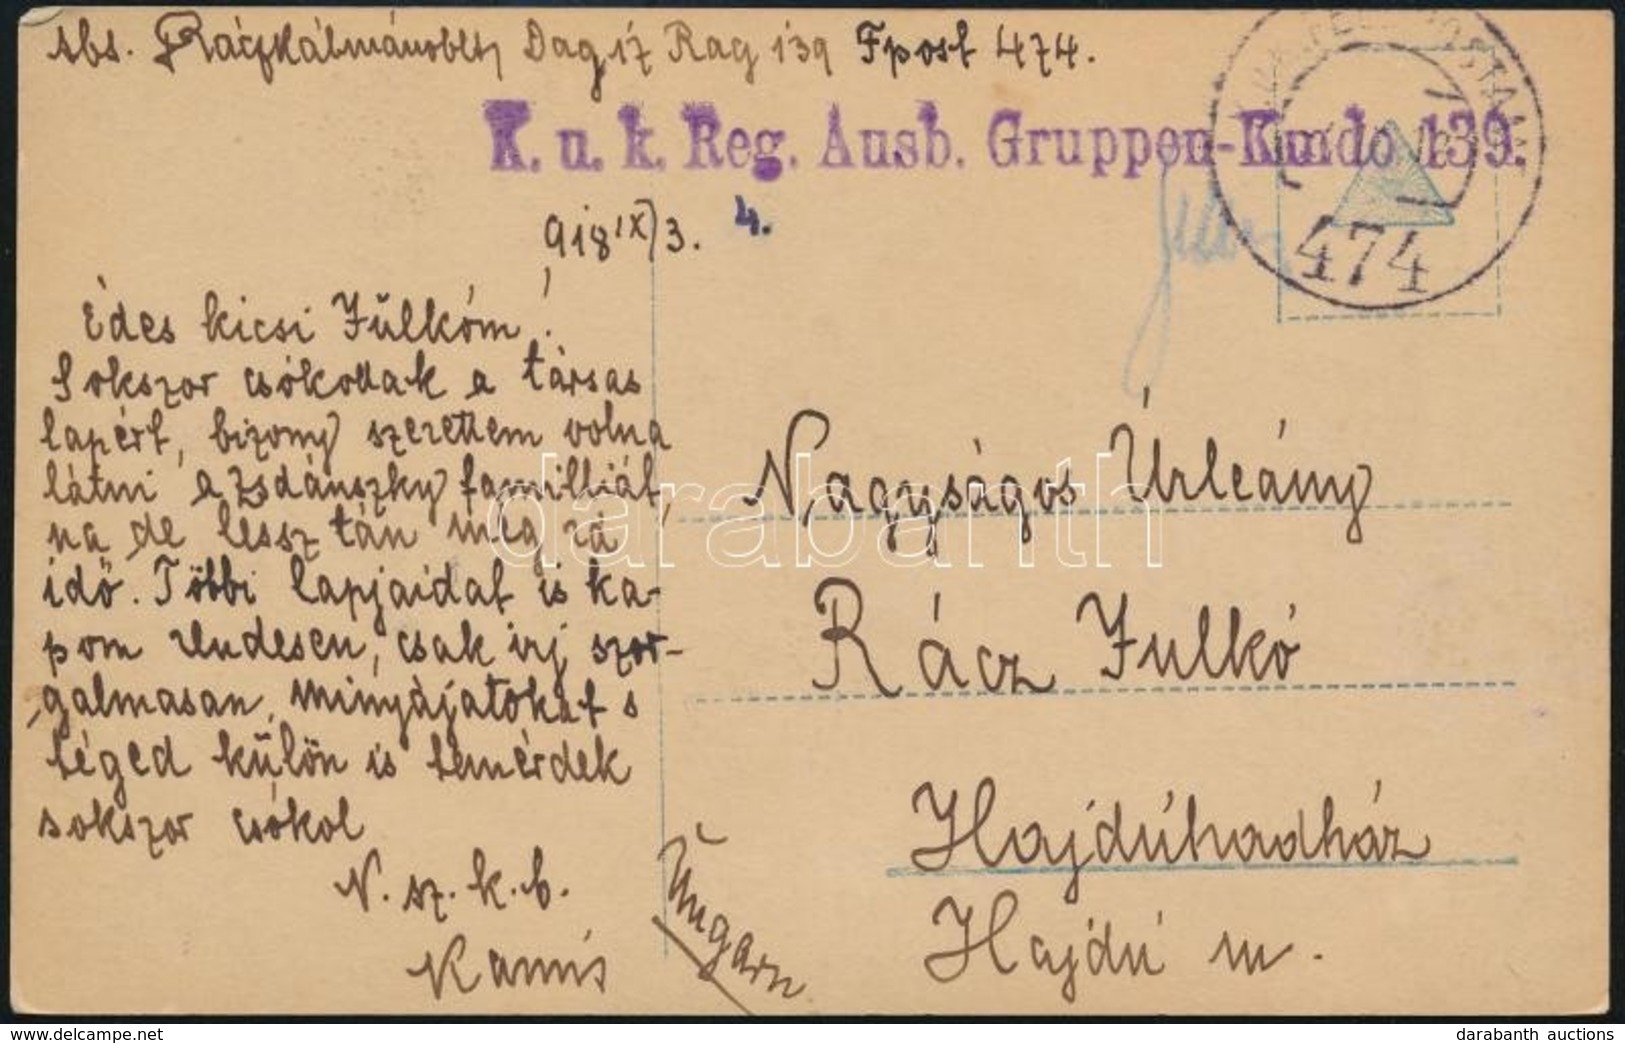 Abs. Ráczkálmánoblt, Dag 17 Rag 139 Fpost 474.
K. u. k. Reg. Ausb. Gruppen-Kmdo 139.
918 IX/3. 4.
474
Édes kicsi Fülkóm!
Sokszor csókollak a társas
lapért, bizony szerettem volna
látni a Zsdánszky familliát,
na de lessz tán még rá
idő. Többi lapjaidat is ka-
pom rendesen, csak irj szor-
galmasan, minyájatokat s
téged külön is temérdek
sokszor csókol
N. sz. k. b.
Ungarn
Nagyságos Úrleány
Rácz Fulkó
Hajdúhadház
Hajdú m.
darabanth
darabanth auctions
www.delcampe.net